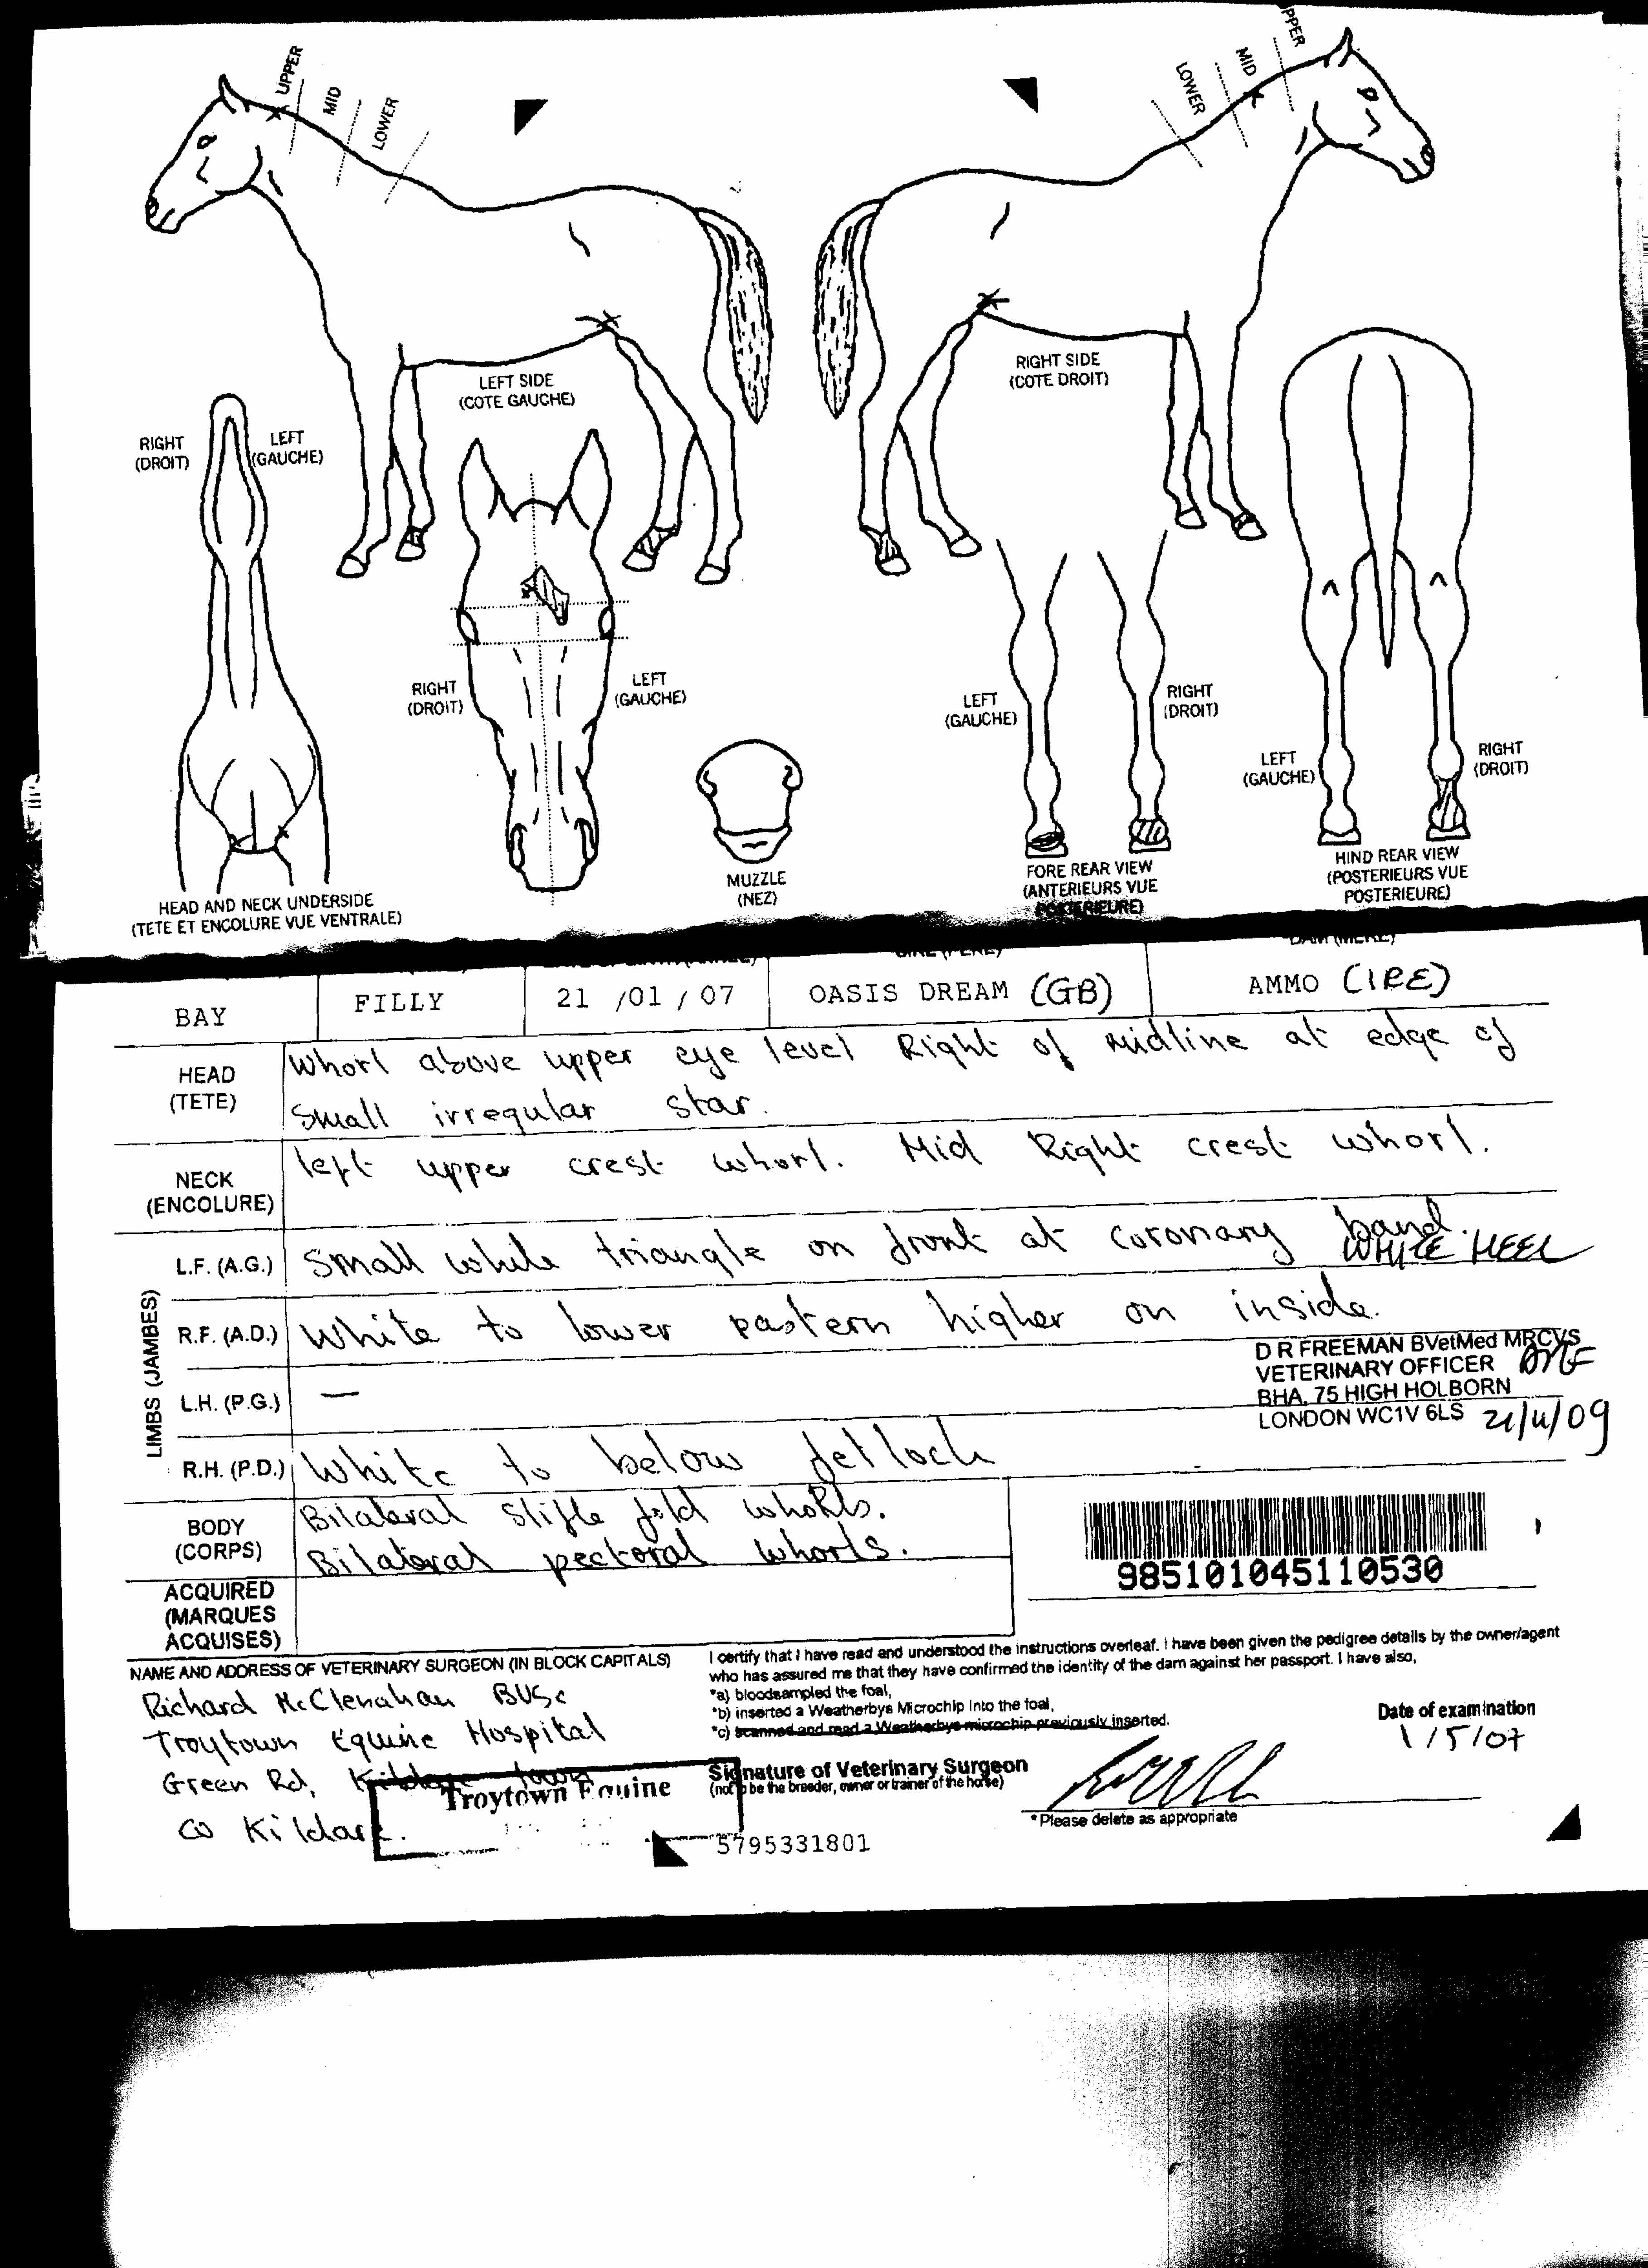 UPPER
MID
LOWER
LOWER
MID
PPER
LEFT SIDE
(COTE GAUCHE)
RIGHT SIDE
(COTE DROIT)
RIGHT
(DROIT)
LEFT
(GAUCHE)
RIGHT
(DROIT)
LEFT
(GAUCHE)
LEFT
(GAUCHE)
RIGHT
(DROIT)
LEFT
(GAUCHE)
RIGHT
(DROIT)
HEAD AND NECK UNDERSIDE
(TETE ET ENCOLURE VUE VENTRALE)
MUZZLE
(NEZ)
FORE REAR VIEW
(ANTERIEURS VUE
POSTERIEURE)
HIND REAR VIEW
(POSTERIEURS VUE
POSTERIEURE)
BAY FILLY 21 /01 / 07 OASIS DREAM (GB) AMMO (IRE)
HEAD
(TETE)
Whorl above upper eye level Right of midline at edge of
small irregular star.
NECK
(ENCOLURE)
left upper crest whorl. Mid Right crest whorl.
LIMBS (JAMBES)
L.F. (A.G.) Small white triangle on front at coronary band.
WHITE HEEL
R.F. (A.D.) White to lower pastern higher on inside.
D R FREEMAN BVetMed MRCVS
VETERINARY OFFICER
BHA, 75 HIGH HOLBORN
LONDON WC1V 6LS 21/4/09
L.H. (P.G.) —
R.H. (P.D.) White to below fetlock
BODY
(CORPS)
Bilateral stifle fold whorls.
Bilateral pectoral whorls.
985101045110530
ACQUIRED
(MARQUES
ACQUISES)
NAME AND ADDRESS OF VETERINARY SURGEON (IN BLOCK CAPITALS)
Richard McClenahan BVSc
Troytown Equine Hospital
Green Rd, Kildare Town
Co Kildare.
Troytown Equine
I certify that I have read and understood the instructions overleaf. I have been given the pedigree details by the owner/agent
who has assured me that they have confirmed the identity of the dam against her passport. I have also,
*a) bloodsampled the foal,
*b) inserted a Weatherbys Microchip into the foal,
*c) scanned and read a Weatherbys microchip previously inserted.
Date of examination
1/5/07
Signature of Veterinary Surgeon
(not to be the breeder, owner or trainer of the horse)
* Please delete as appropriate
5795331801